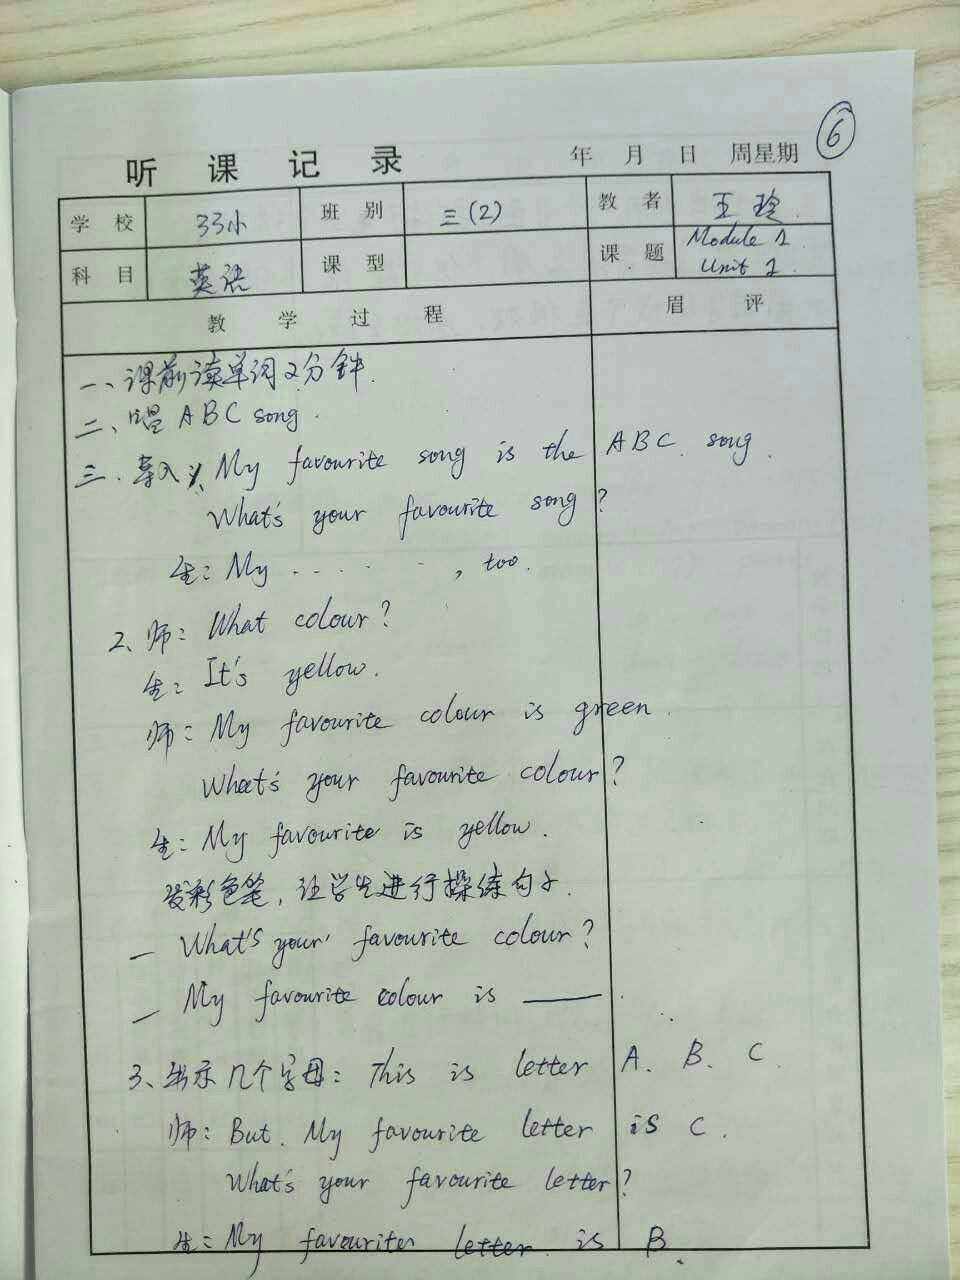 ⑥
听课记录 年 月 日 周星期
学校 33小 班别 三(2) 教者 王玲
科目 英语 课型 课题 Module 1 Unit 1
教学过程 眉评
一、课前读单词2分钟.
二、唱 ABC song.
三、导入 1、My favourite song is the ABC song.
What's your favourite song?
生: My ······, too.
2、师: What colour?
生: It's yellow.
师: My favourite colour is green.
What's your favourite colour?
生: My favourite is yellow.
发彩色笔, 让学生进行操练句子.
— What's your favourite colour?
— My favourite colour is ——.
3、出示几个字母: This is letter A. B. C
师: But. My favourite letter is C.
What's your favourite letter?
生: My favourites letter is B.